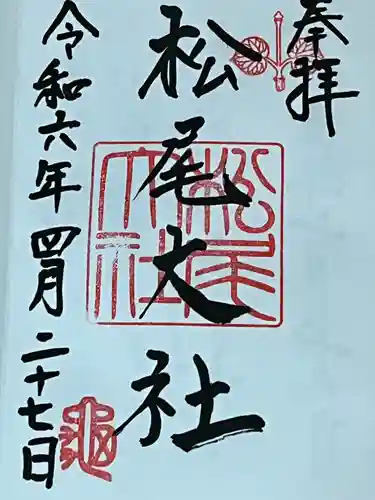 奉拝
松尾大社
松尾大社
令和六年四月二十七日